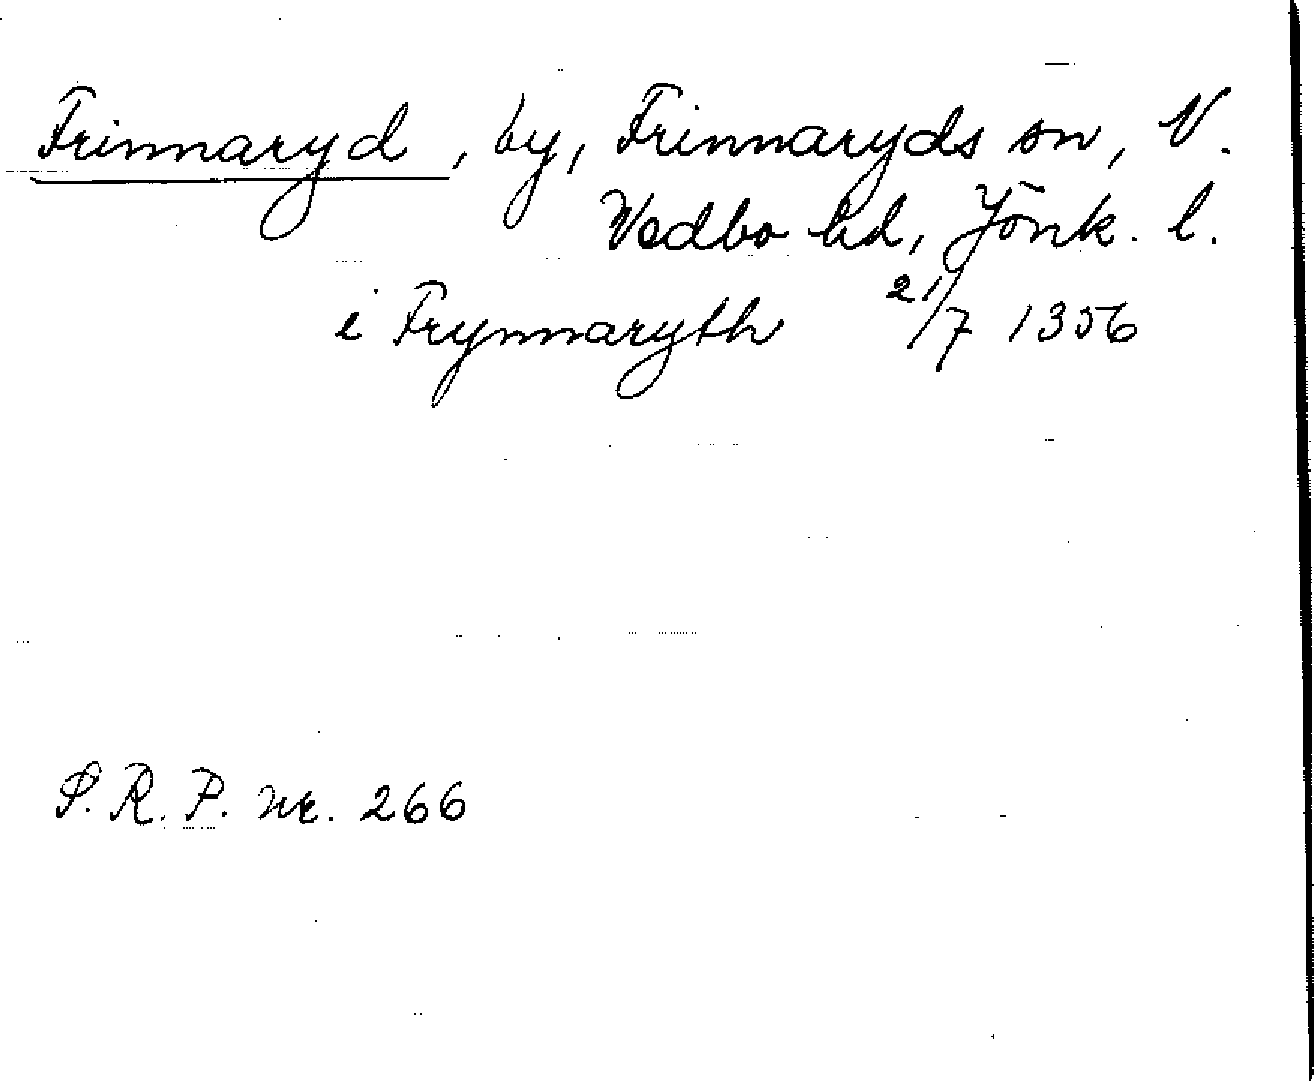 Frinnaryd, by, Frinnaryds sn, N.
Vedbo hd, Jönk. l.
i Frynnaryth 21/7 1356
S. R. P. nr. 266